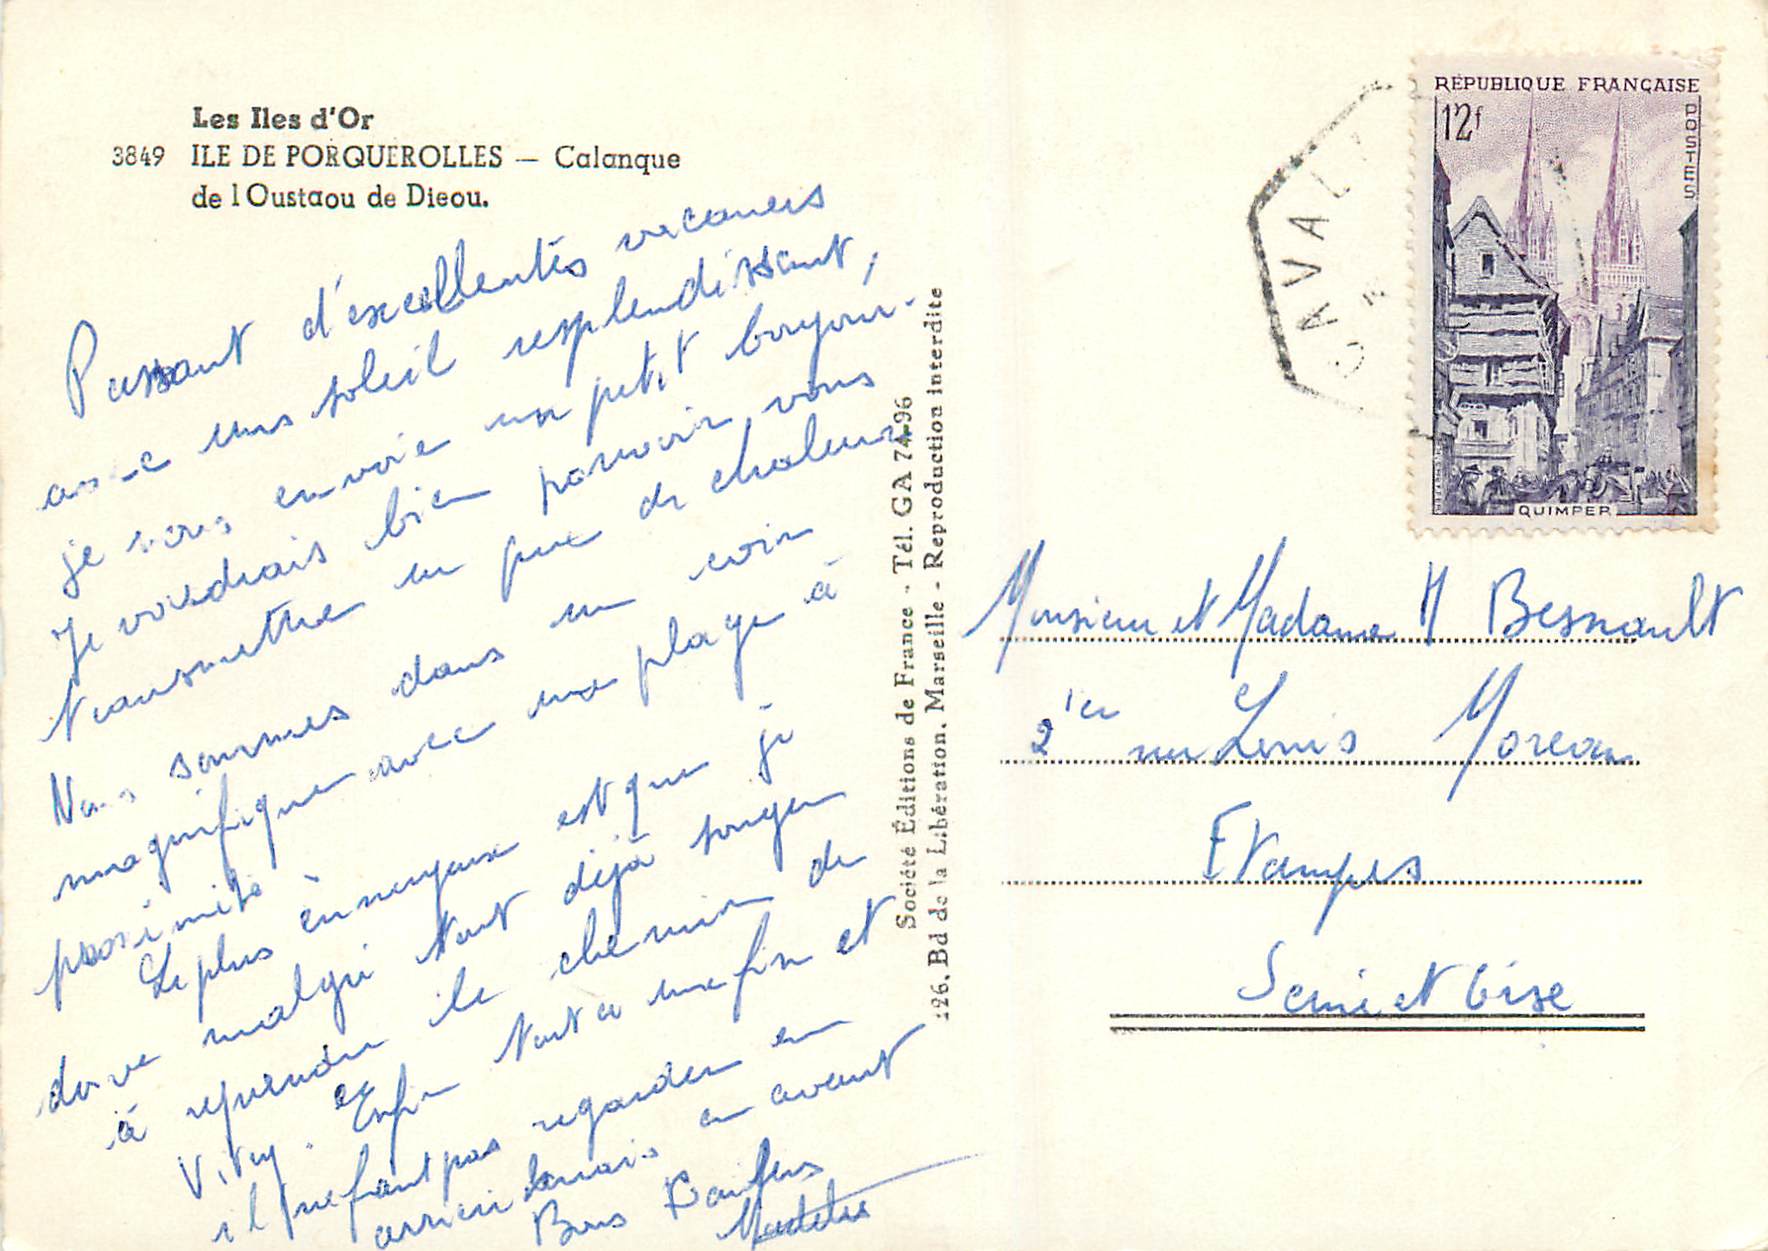 Les Iles d'Or
3849 ILE DE PORQUEROLLES — Calanque
de l Oustaou de Dieou.
Passant d'excellentes vacances
avec un soleil resplendissant,
je vous envoie un petit bonjour.
Je voudrais bien pouvoir vous
transmettre un peu de chaleur
Nous sommes dans un coin
magnifique avec une plage à
proximité
Le plus ennuyeux est que je
dove malgré tout déjà songer
à reprendre le chemin de
Vitry. Enfin tout a une fin et
il ne faut pas regarder en
arrière mais en avant
Bons Baisers
Société Éditions de France - Tél. GA 74-96
126, Bd de la Libération, Marseille - Reproduction interdite
CAVAL
RÉPUBLIQUE FRANÇAISE
12f
POSTES
QUIMPER
Monsieur et Madame H Besnault
2ter rue Louis Moreau
Etampes
Seine et Oise